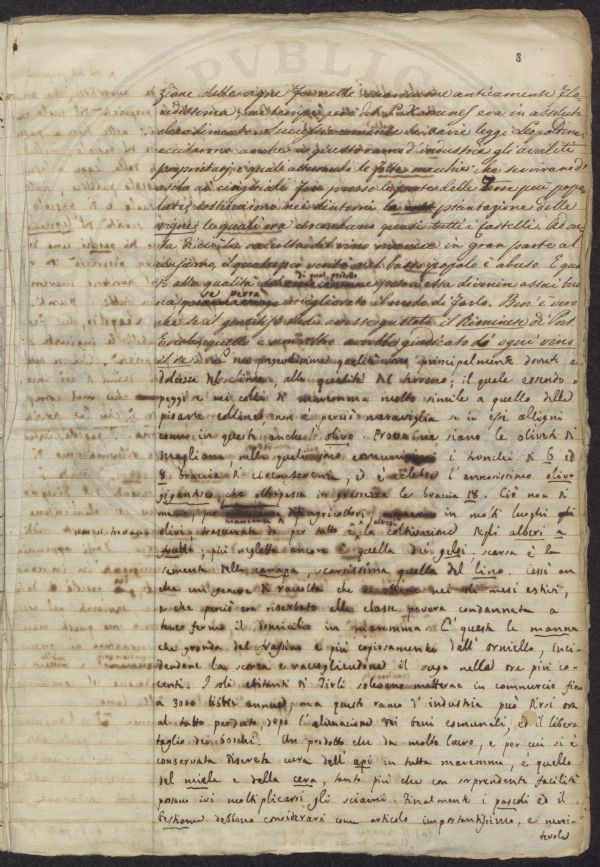 PVBLIC
3
zione delle vigne
anticamente
decadimento
leggi Leopoldine
eccitarono anche in questo ramo d'industria gli avviliti
proprietarj, i quali atterrando le folte macchie che servivano d'
asilo ai cinghiali fin presso le porte delle Terre più popo
late, sostituirono nei dintorni la piantazione delle
vigne, le quali ora circondano quasi tutti i castelli. Ad on
ta di ciò la raccolta del vino manca in gran parte al
consumo, il quale per verità nel basso popolo è abuso. E qua
si alla qualità di quel prodotto
essa diverrà assai buo
na se verrà migliorato il modo di farlo. Ben è vero
che se il
avesse gustato il Riminese di Port
Ercole, questo e non altro avrebbe giudicato di ogni vino
il re. Le
qualità sono principalmente dovute a
dolcezza del clima, alla qualità del terreno; il quale essendo
nei colli di maremma molto simile a quello delle
pisane colline, non è perciò maraviglia se in essi alligni
come in questi anche l'olivo. Prova ne siano le oliveti di
Magliano, nelle quali sono comuni i tronchi di 6 ed
8 braccia di circonferenza, ed è celebre l'annosissimo olivo
gigantesco, che oltrepassa in grossezza le braccia 18. Ciò non di
meno, per mancanza di agricoltori, in molti luoghi gli
non si trovano
olivi; trascurata da per tutto è la coltivazione degli alberi a
frutto; più negletta ancora è quella dei gelsi, scarsa è la
sementa della canapa, scarsissima quella del lino. Cessò an
che un genere di raccolta che si ottiene nei soli mesi estivi,
e che perciò era riserbato alla classe povera condannata a
tener fermo il domicilio in maremma. È questa la manna
che gronda dal frassino e più copiosamente dall'orniello, inci
dendone la scorza e raccogliendone il sugo nelle ore più co
centi. I soli abitanti di Tirli solevano metterne in commercio fino
a 3000 libbre annue, ma questo ramo d'industria può dirsi ora
al tutto perduto, dopo l'alienazione dei beni comunali, ed il libero
taglio dei boschi. Un prodotto che dà molto lucro, e per cui si è
conservata discreta cura dell'api in tutta maremma, è quello
del miele e della cera, tanto più che con sorprendente facilità
possono ivi moltiplicarsi gli sciami. Finalmente i pascoli ed il
bestiame debbono considerarsi come articolo importantissimo, e meri
tevole